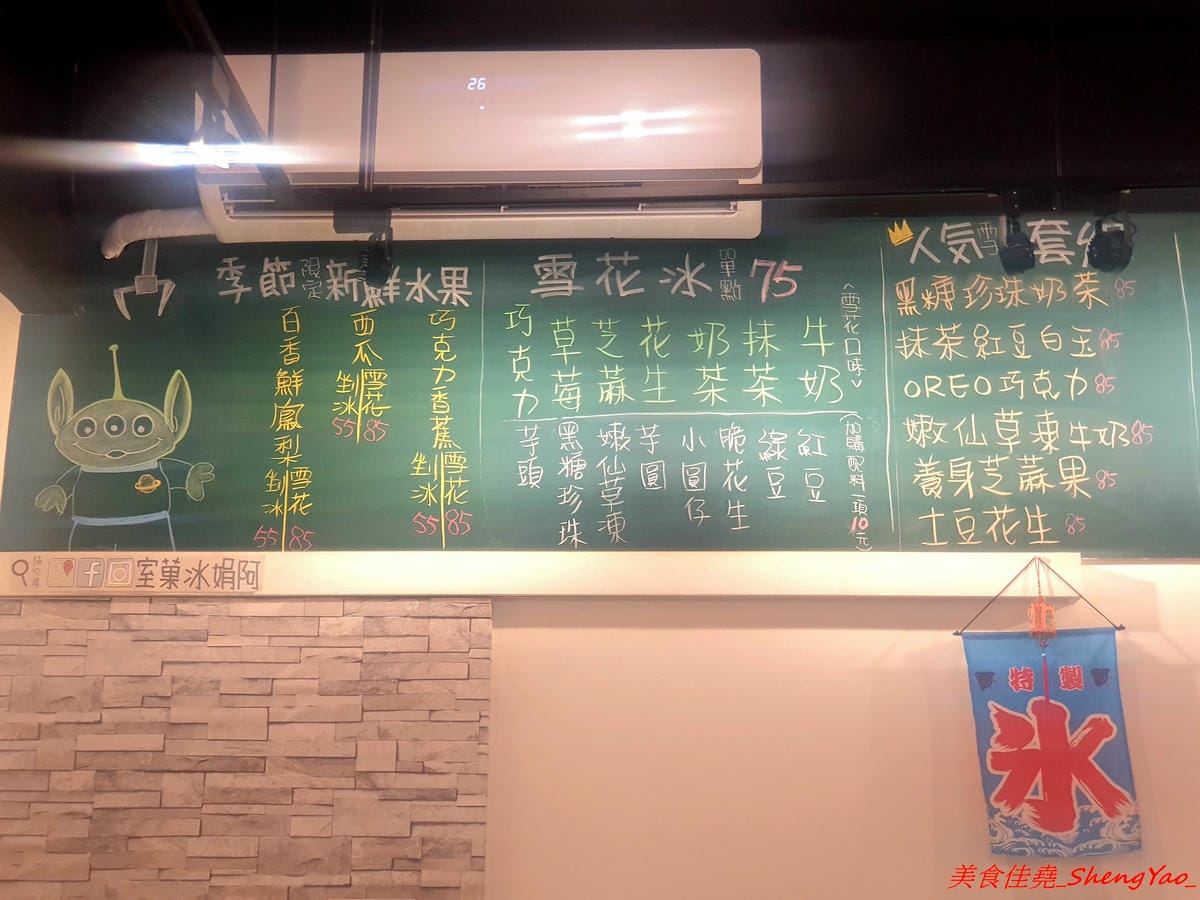 26
季節限定新鮮水果
巧克力香蕉
剉冰 55
雪花 85
西瓜
剉冰 55
雪花 85
百香鮮鳳梨
剉冰 55
雪花 85
雪花冰 單點 75
<雪花口味>
牛奶
抹茶
奶茶
花生
芝蔴
草莓
巧克力
(加購配料一項10元)
紅豆
綠豆
脆花生
小圓仔
芋圓
嫩仙草凍
黑糖珍珠
芋頭
人氣雪 套組
黑糖珍珠奶茶 85
抹茶紅豆白玉 85
OREO巧克力 85
嫩仙草凍牛奶 85
養身芝蔴果 85
土豆花生 85
阿娟冰菓室
特製
氷
美食佳堯_ShengYao_